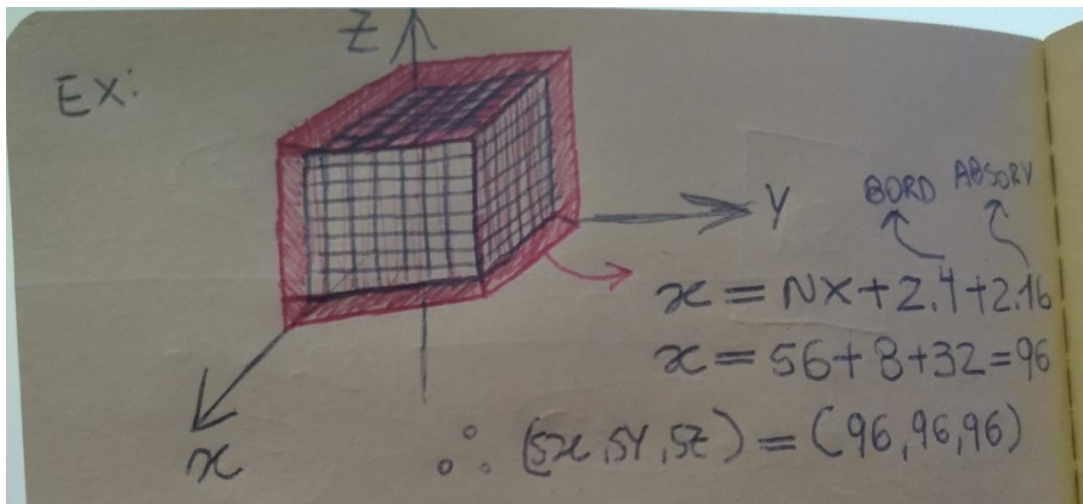 EX:
Z
Y
BORD ABSORV
x = NX + 2.4 + 2.16
x = 56 + 8 + 32 = 96
x
∴ (sx, sy, sz) = (96, 96, 96)